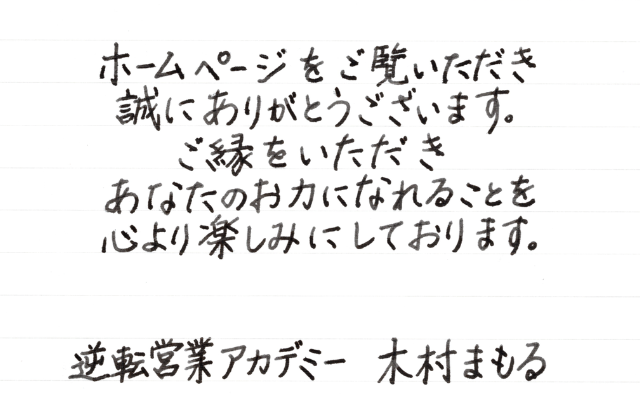 ホームページをご覧いただき
誠にありがとうございます。
ご縁をいただき
あなたのお力になれることを
心より楽しみにしております。
逆転営業アカデミー 木村まもる